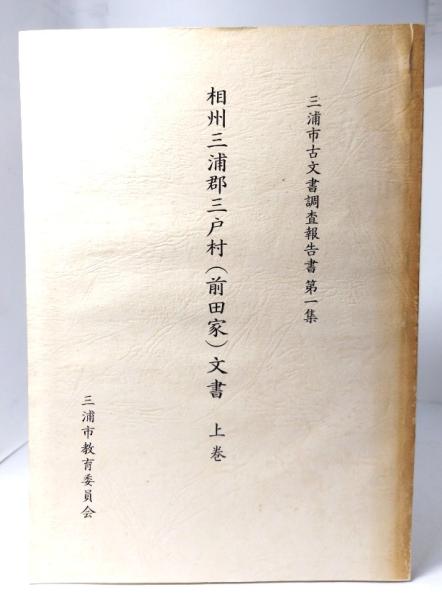 三浦市古文書調査報告書 第一集
相州三浦郡三戸村（前田家）文書 上巻
三浦市教育委員会